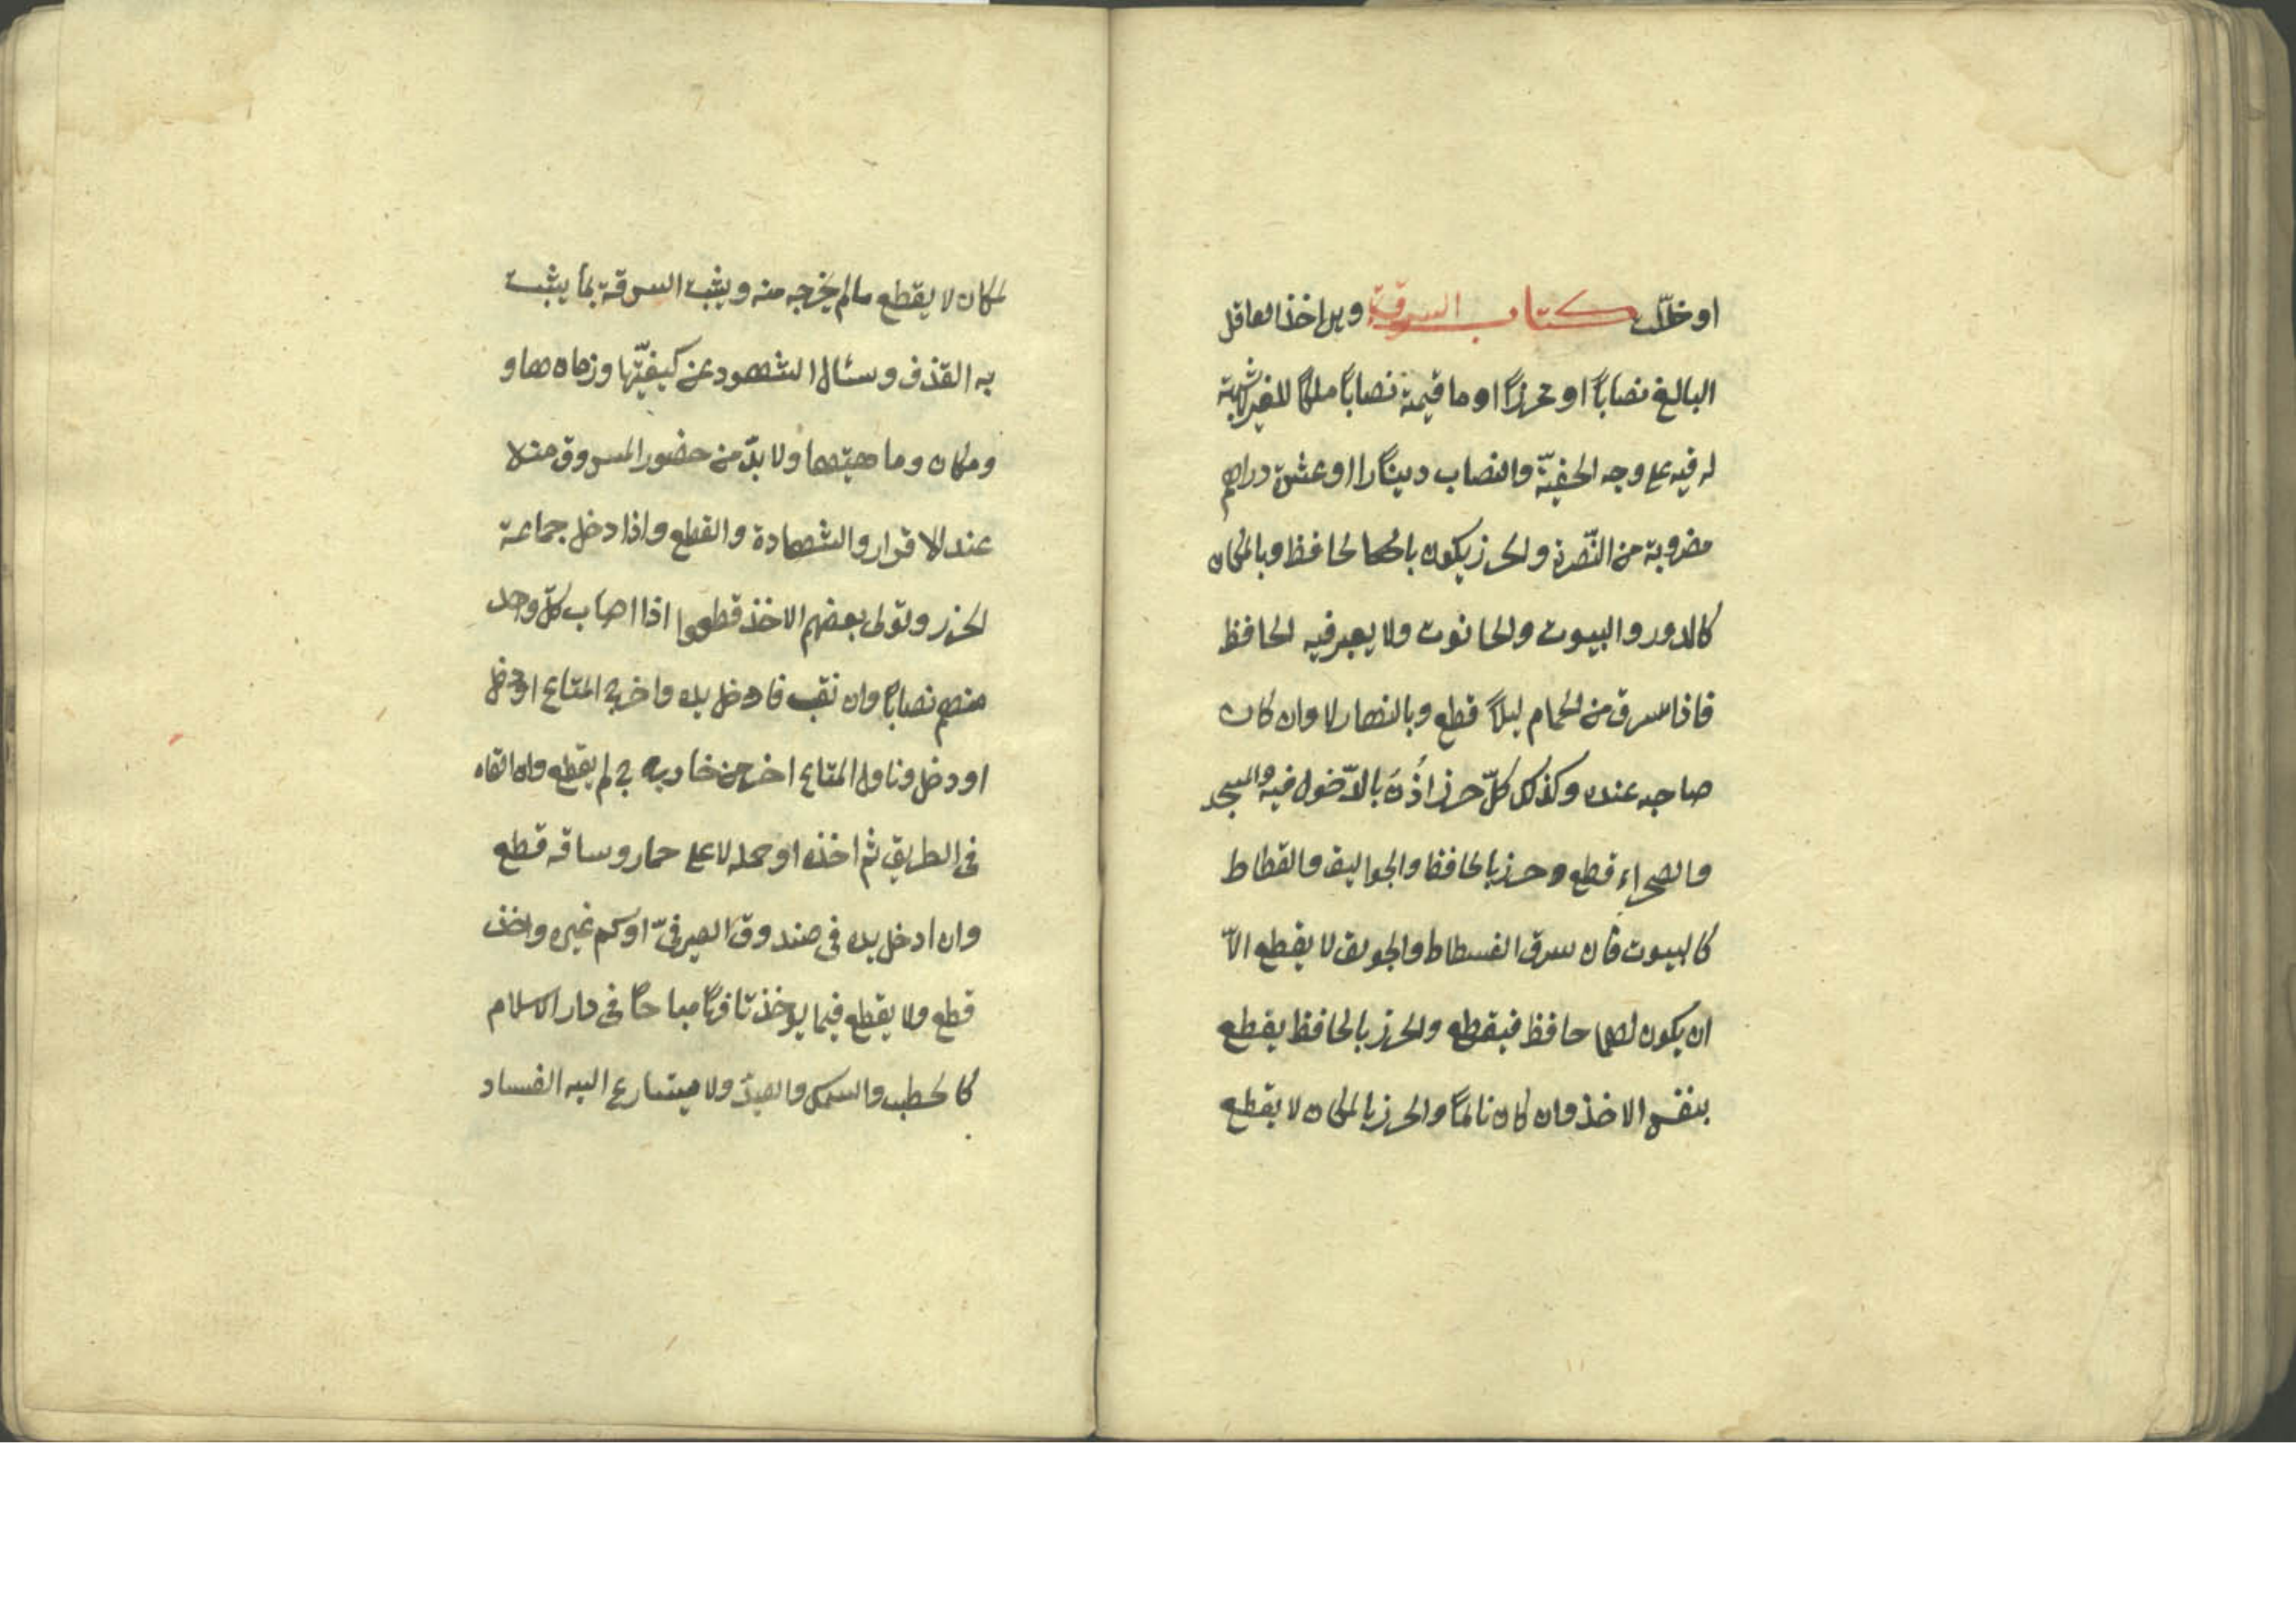 او خلّ كتاب السرقة وهى اخذ العاقل
البالغ نصاباً او محرزاً او ما قيمته نصاباً ملكاً للغير لا شبهة
له فيه على وجه الخفيّة والنصاب ديناراً او عشرة دراهم
مضروبة من النّقرة والحرز يكون بالحافظ وبالمكان
كالدور والبيوت والحانوت ولا يعبر فيه الحافظ
فاذا سرق من الحمام ليلاً قطع وبالنهار لا وان كان
صاحبه عنده وكذلك كلّ حرز اذن بالدّخول فيه والمسجد
والصحراء قطع وحرز بالحافظ والجواليق والقطاط
كالبيوت فان سرق الفسطاط والجولق لا يقطع الاّ
ان يكون لهما حافظ فيقطع والحرز بالحافظ يقطع
بنفس الاخذ وان كان نائماً والحرز بالمكان لا يقطع
لمكان لا يقطع ما لم يخرجه منه ويثبت السرقة بما يثبت
به القذف وسئال الشهود عن كيفيّتها وزمانها و
ومكان وما هيتها ولا بدّ من حضور المسروق منه
عند الاقرار والشهادة والقطع واذا دخل جماعة
الحرز وتولى بعضهم الاخذ قطعوا اذا اصاب كلّ واحد
منهم نصاباً وان نقب فادخل يده واخرج المتاع او دخل
او دخل وناول المتاع اخر من خارج لم يقطع وان القاه
فى الطريق ثم اخذه او حمله على حمار وساقه قطع
وان ادخل يده فى صندوق الصيرفىّ او كم غيره واخذ
قطع ولا يقطع فيما يوخذ تافهاً مباحاً فى دار الاسلام
كالحطب والسمك والصيد ولا ميتسارع اليه الفساد